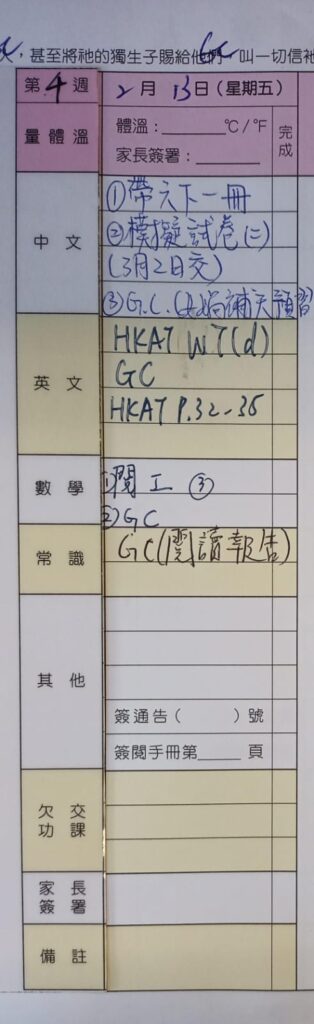 ，甚至將祂的獨生子賜給他們，叫一切信祂
第4週 2月13日(星期五)
量體溫 體溫：______℃/℉ 完成
家長簽署：______
中文 ①帶六下一冊
②模擬試卷(二)
(3月2日交)
③G.C.(女媧補天預習)
英文 HKAT WT(d)
GC
HKAT P.32-35
數學 ①閱工③
②GC
常識 GC(閱讀報告)
其他
簽通告(　　)號
簽閱手冊第____頁
欠交功課
家長簽署
備註